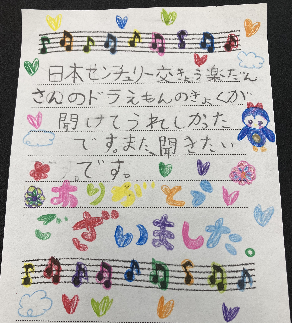 日本センチュリー交きょう楽だん
さんのドラえもんのきょくが
聞けてうれしかった
です。また、聞きたい
です。
ありがとう
ございました。